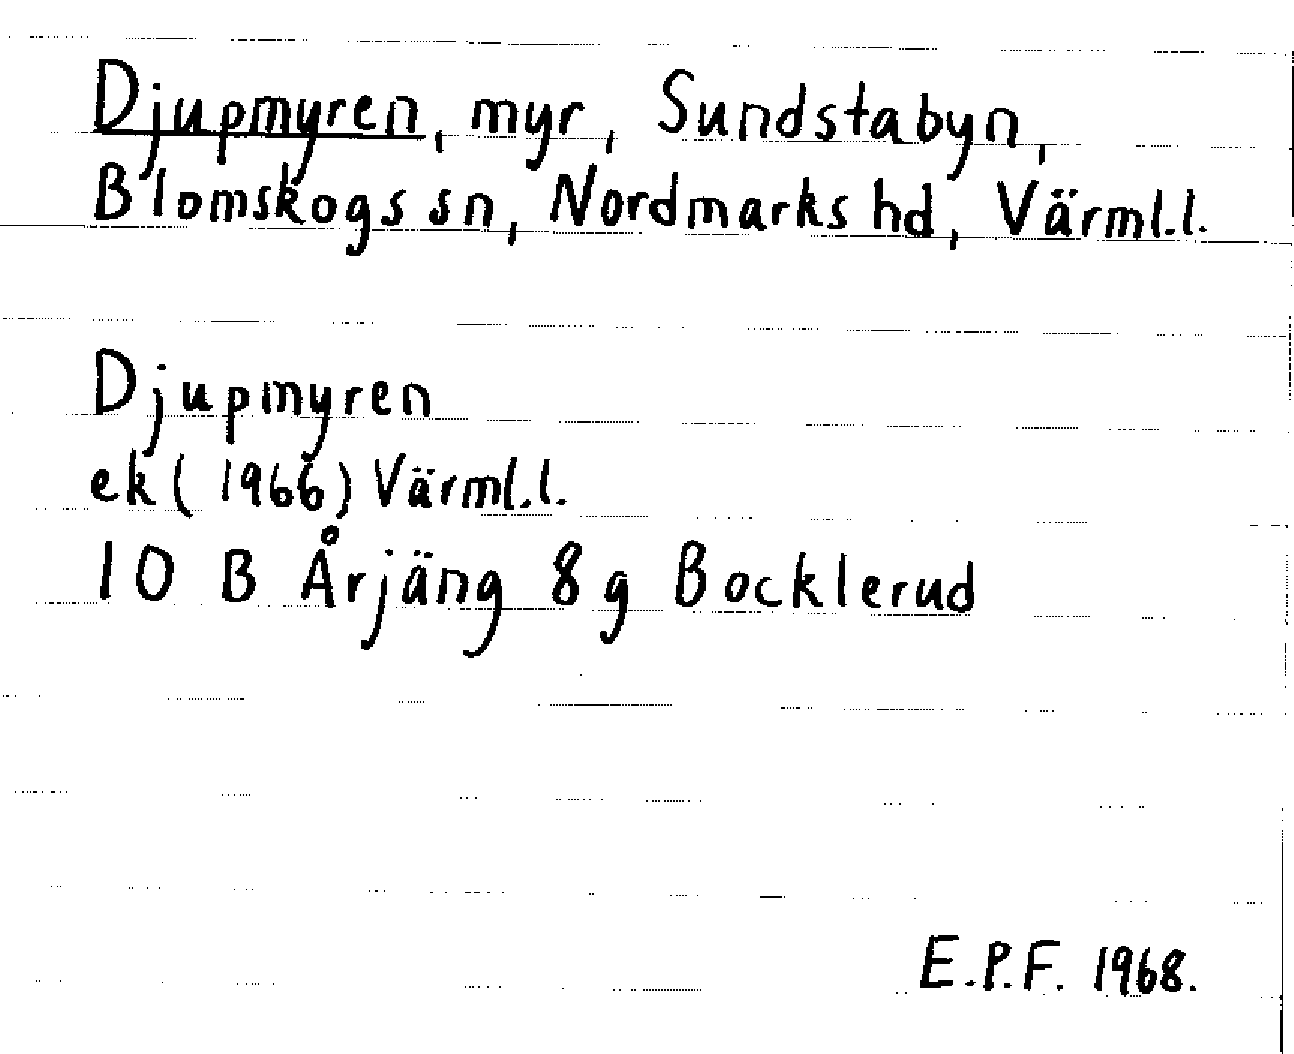 Djupmyren, myr, Sundstabyn,
Blomskogs sn, Nordmarks hd, Värml.l.
Djupmyren
ek (1966) Värml.l.
10 B Årjäng 8g Bocklerud
E.P.F. 1968.